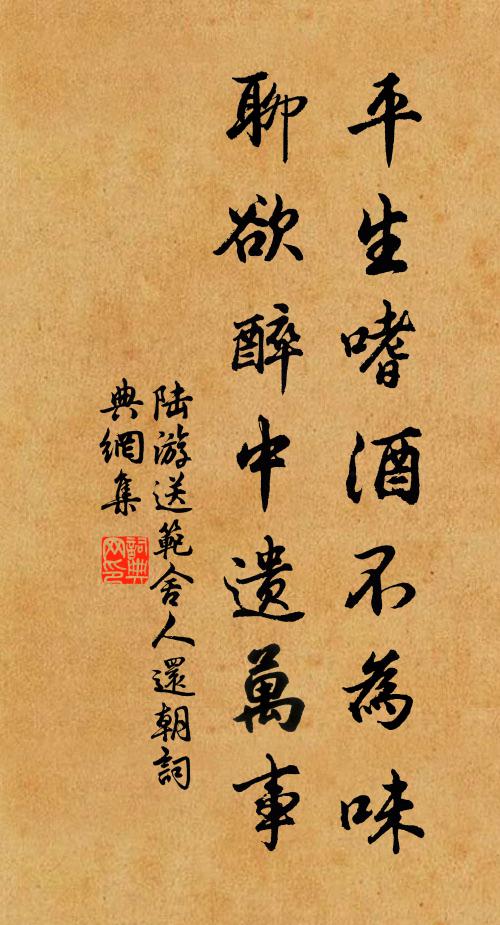 平生嗜酒不為味
聊欲醉中遺萬事
陆游送範舍人還朝詞
典網集
詞典網印